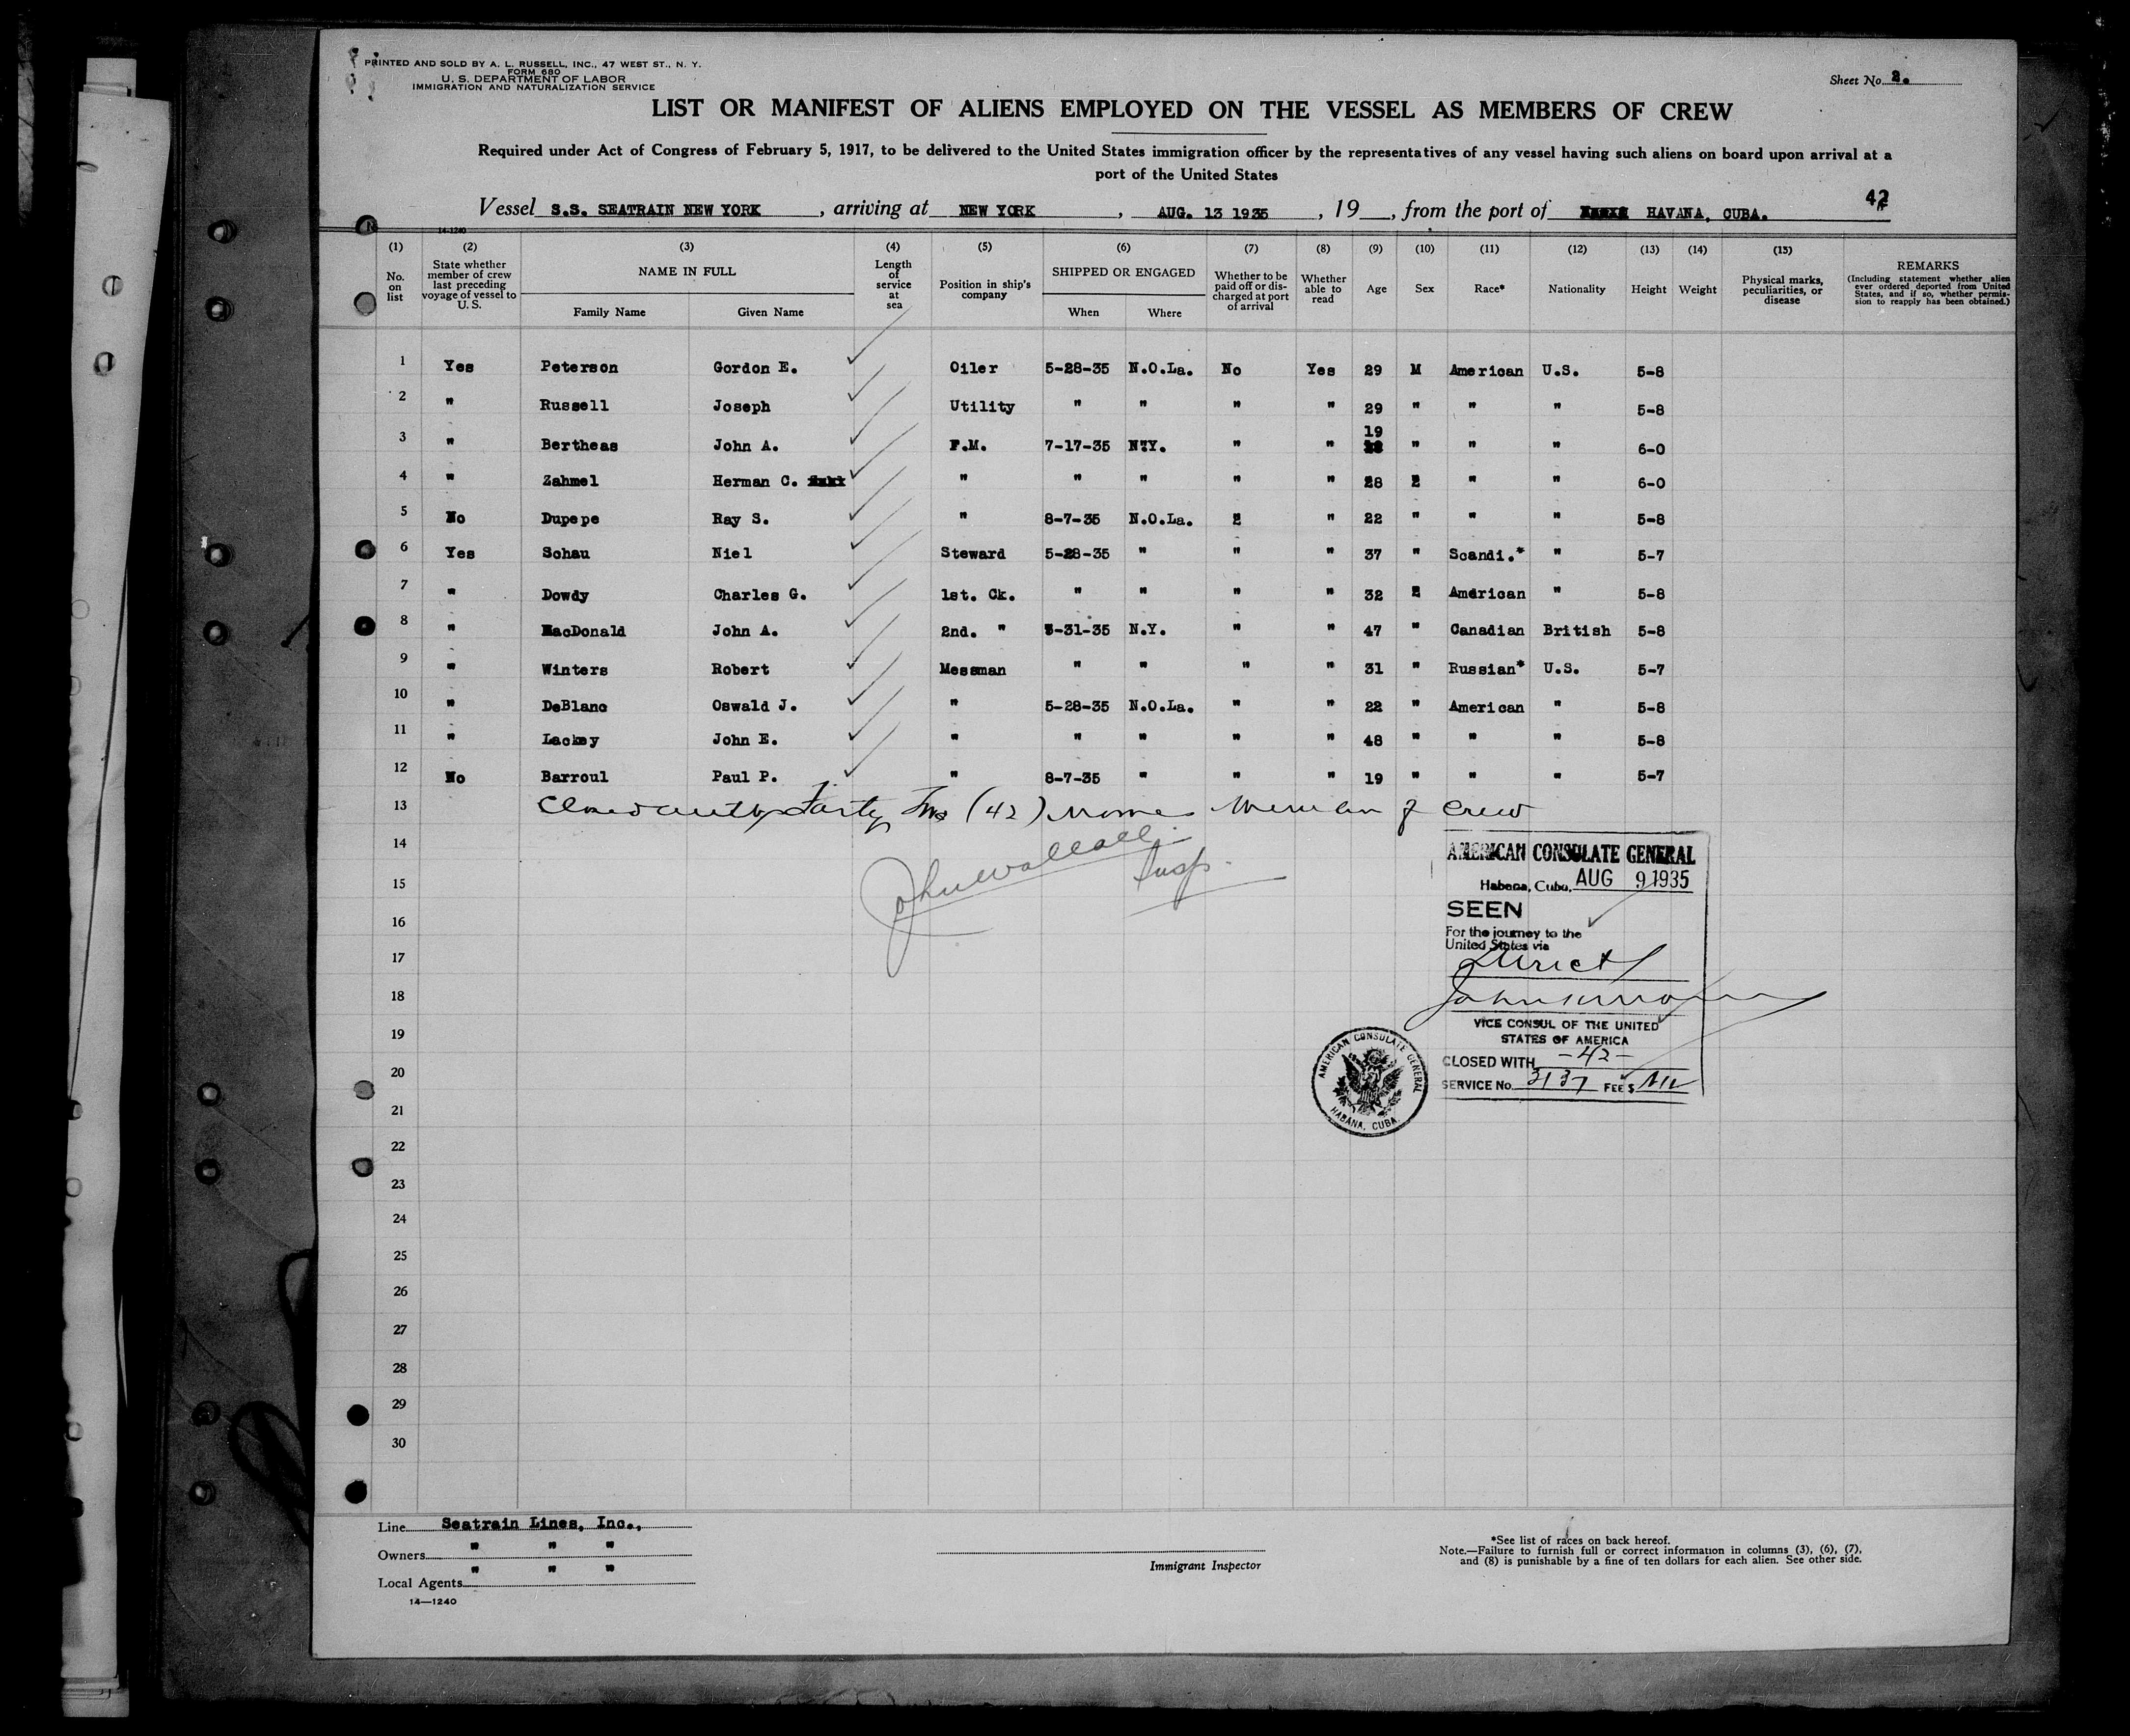 PRINTED AND SOLD BY A. L. RUSSELL, INC., 47 WEST ST., N. Y.
FORM 680
U. S. DEPARTMENT OF LABOR
IMMIGRATION AND NATURALIZATION SERVICE
Sheet No. 2.
LIST OR MANIFEST OF ALIENS EMPLOYED ON THE VESSEL AS MEMBERS OF CREW
Required under Act of Congress of February 5, 1917, to be delivered to the United States immigration officer by the representatives of any vessel having such aliens on board upon arrival at a
port of the United States
42
Vessel S.S. SEATRAIN NEW YORK, arriving at NEW YORK, AUG. 13 1935, 19__, from the port of HAVANA, CUBA.
14-1240
(1) (2) (3) (4) (5) (6) (7) (8) (9) (10) (11) (12) (13) (14) (15)
No. on list
State whether member of crew last preceding voyage of vessel to U. S.
NAME IN FULL
Family Name Given Name
Length of service at sea
Position in ship's company
SHIPPED OR ENGAGED
When Where
Whether to be paid off or discharged at port of arrival
Whether able to read
Age
Sex
Race*
Nationality
Height
Weight
Physical marks, peculiarities, or disease
REMARKS
(Including statement whether alien ever ordered deported from United States, and if so, whether permission to reapply has been obtained.)
1 Yes Peterson Gordon E. Oiler 5-28-35 N.O.La. No Yes 29 M American U.S. 5-8
2 " Russell Joseph Utility " " " " 29 " " " 5-8
3 " Bertheas John A. F.M. 7-17-35 N.Y. " " 19 " " " 6-0
4 " Zahmel Herman C. " " " " " 28 " " " 6-0
5 No Dupepe Ray S. " 8-7-35 N.O.La. " " 22 " " " 5-8
6 Yes Schau Niel Steward 5-28-35 " " " 37 " Scandi.* " 5-7
7 " Dowdy Charles G. 1st. Ck. " " " " 32 " American " 5-8
8 " MacDonald John A. 2nd. " 5-31-35 N.Y. " " 47 " Canadian British 5-8
9 " Winters Robert Messman " " " " 31 " Russian* U.S. 5-7
10 " DeBlanc Oswald J. " 5-28-35 N.O.La. " " 22 " American " 5-8
11 " Lackey John E. " " " " " 48 " " " 5-8
12 No Barroul Paul P. " 8-7-35 " " " 19 " " " 5-7
13 Closed with forty two (42) names member of crew
14
15
16
17
18
19
20
21
22
23
24
25
26
27
28
29
30
Insp.
AMERICAN CONSULATE GENERAL
Habana, Cuba, AUG 9 1935
SEEN
For the journey to the
United States via
Direct
VICE CONSUL OF THE UNITED
STATES OF AMERICA
CLOSED WITH -42-
SERVICE No. 3137 FEE $ Nil
AMERICAN CONSULATE GENERAL
HABANA, CUBA
Line Seatrain Lines, Inc.,
Owners " " "
Local Agents " " "
14—1240
Immigrant Inspector
*See list of races on back hereof.
Note.—Failure to furnish full or correct information in columns (3), (6), (7),
and (8) is punishable by a fine of ten dollars for each alien. See other side.